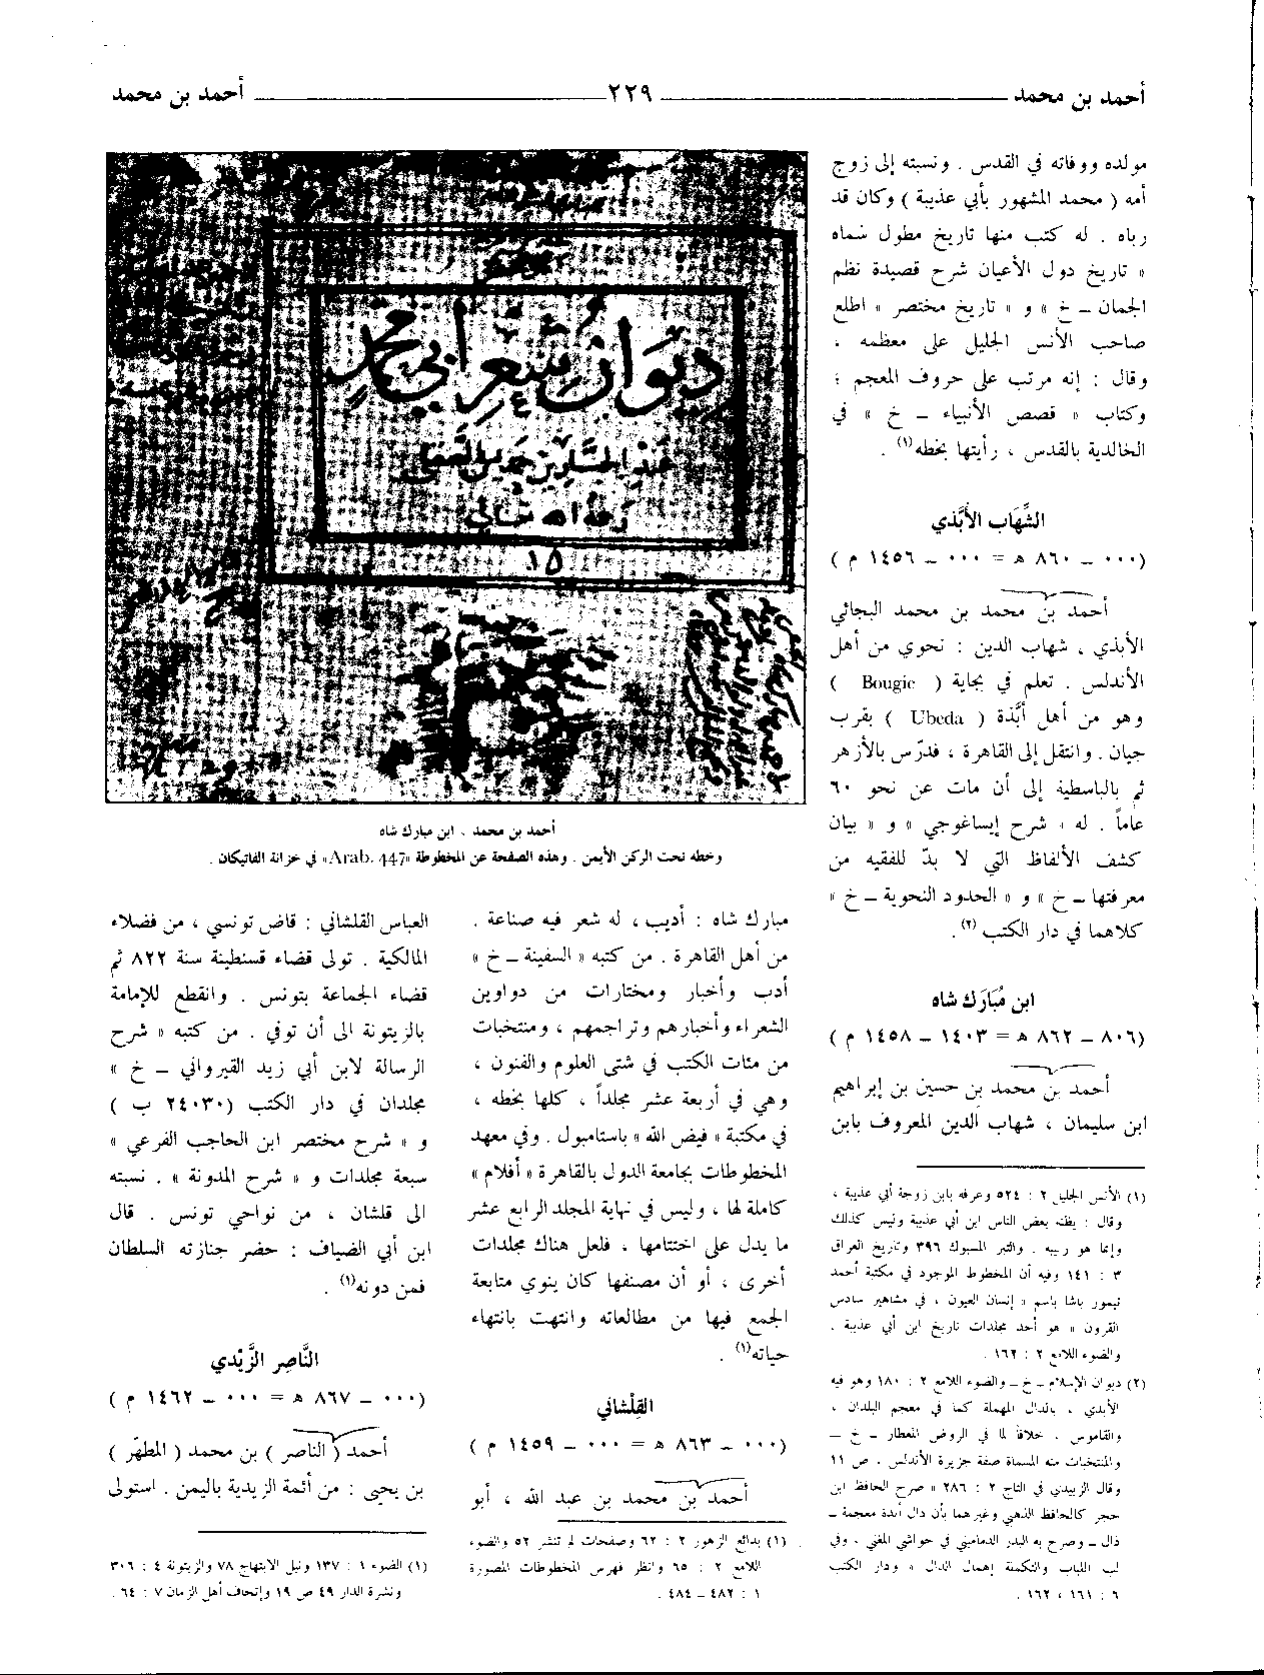 أحمد بن محمد ٢٢٩ أحمد بن محمد
مولده ووفاته في القدس . ونسبته إلى زوج
أمه ( محمد المشهور بأبي عذيبة ) وكان قد
رباه . له كتب منها تاريخ مطول سماه
« تاريخ دول الأعيان شرح قصيدة نظم
الجمان ــ خ » و « تاريخ مختصر » اطلع
صاحب الأنس الجليل على معظمه ،
وقال : إنه مرتب على حروف المعجم ؛
وكتاب « قصص الأنبياء ــ خ » في
الخالدية بالقدس ، رأيتها بخطه(١) .
الشِّهَاب الأُبَّذي
(٠٠٠ ــ ٨٦٠ هـ = ٠٠٠ ــ ١٤٥٦ م )
أحمد بن محمد بن محمد البجائي
الأبذي ، شهاب الدين : نحوي من أهل
الأندلس . تعلم في بجاية ( Bougie )
وهو من أهل أبَّذة ( Ubeda ) بقرب
جيان . وانتقل إلى القاهرة ، فدرّس بالأزهر
ثم بالباسطية إلى أن مات عن نحو ٦٠
عاماً . له « شرح إيساغوجي » و « بيان
كشف الألفاظ التي لا بدّ للفقيه من
معرفتها ــ خ » و « الحدود النحوية ــ خ »
كلاهما في دار الكتب (٢) .
ابن مُبَارَك شاه
(٨٠٦ ــ ٨٦٢ هـ = ١٤٠٣ ــ ١٤٥٨ م )
أحمد بن محمد بن حسين بن إبراهيم
ابن سليمان ، شهاب الدين المعروف بابن
(١) الأنس الجليل ٢ : ٥٢٤ وعرفه بابن زوجة أبي عذيبة ،
وقال : يظنه بعض الناس ابن أبي عذيبة وليس كذلك
وإنما هو ربيبه . والتبر المسبوك ٣٩٦ وتاريخ العراق
٣ : ١٤١ وفيه أن المخطوط الموجود في مكتبة أحمد
تيمور باشا باسم « إنسان العيون ، في مشاهير سادس
القرون » هو أحد مجلدات تاريخ ابن أبي عذيبة .
والضوء اللامع ٢ : ١٦٢ .
(٢) ديوان الإسلام ــ خ ــ والضوء اللامع ٢ : ١٨٠ وهو فيه
الأبدي ، بالدال المهملة كما في معجم البلدان ،
والقاموس . خلافاً لما في الروض المعطار ــ خ ــ
والمنتخبات منه المسماة صفة جزيرة الأندلس . ص ١١
وقال الزبيدي في التاج ٢ : ٢٨٦ « صرح الحافظ ابن
حجر كالحافظ الذهبي وغيرهما بأن دال أبدة معجمة ــ
ذال ــ وصرح به البدر الدماميني في حواشي المغني . وفي
لب اللباب والتكملة إهمال الدال » ودار الكتب
٦ : ١٦١ ، ١٦٢ .
ديوان شعر أبي محمد
رحمه الله تعالى
١٥
أحمد بن محمد ، ابن مبارك شاه
وخطه تحت الركن الأيمن . وهذه الصفحة عن المخطوطة «Arab. 447» في خزانة الفاتيكان .
مبارك شاه : أديب ، له شعر فيه صناعة .
من أهل القاهرة . من كتبه « السفينة ــ خ »
أدب وأخبار ومختارات من دواوين
الشعراء وأخبارهم وتراجمهم ، ومنتخبات
من مئات الكتب في شتى العلوم والفنون ،
وهي في أربعة عشر مجلداً ، كلها بخطه ،
في مكتبة « فيض الله » باستامبول . وفي معهد
المخطوطات بجامعة الدول بالقاهرة « أفلام »
كاملة لها ، وليس في نهاية المجلد الرابع عشر
ما يدل على اختتامها ، فلعل هناك مجلدات
أخرى ، أو أن مصنفها كان ينوي متابعة
الجمع فيها من مطالعاته وانتهت بانتهاء
حياته(١) .
القِلْشاني
(٠٠٠ ــ ٨٦٣ هـ = ٠٠٠ ــ ١٤٥٩ م )
أحمد بن محمد بن عبد الله ، أبو
(١) بدائع الزهور ٢ : ٦٢ وصفحات لم تنشر ٥٢ والضوء
اللامع ٢ : ٦٥ وانظر فهرس المخطوطات المصورة
١ : ٤٨٢ ــ ٤٨٤ .
العباس القلشاني : قاض تونسي ، من فضلاء
المالكية . تولى قضاء قسنطينة سنة ٨٢٢ ثم
قضاء الجماعة بتونس . وانقطع للإمامة
بالزيتونة الى أن توفي . من كتبه « شرح
الرسالة لابن أبي زيد القيرواني ــ خ »
مجلدان في دار الكتب (٢٤٠٣٠ ب )
و « شرح مختصر ابن الحاجب الفرعي »
سبعة مجلدات و « شرح المدونة » . نسبته
الى قلشان ، من نواحي تونس . قال
ابن أبي الضياف : حضر جنازته السلطان
فمن دونه(١) .
النَّاصِر الزَّيْدي
(٠٠٠ ــ ٨٦٧ هـ = ٠٠٠ ــ ١٤٦٢ م )
أحمد ( الناصر ) بن محمد ( المطهّر )
بن يحيى : من أئمة الزيدية باليمن . استولى
(١) الضوء ١ : ١٣٧ ونيل الابتهاج ٧٨ والزيتونة ٤ : ٣٠٦
ونشرة الدار ٤٩ ص ١٩ وإتحاف أهل الزمان ٧ : ٦٤ .